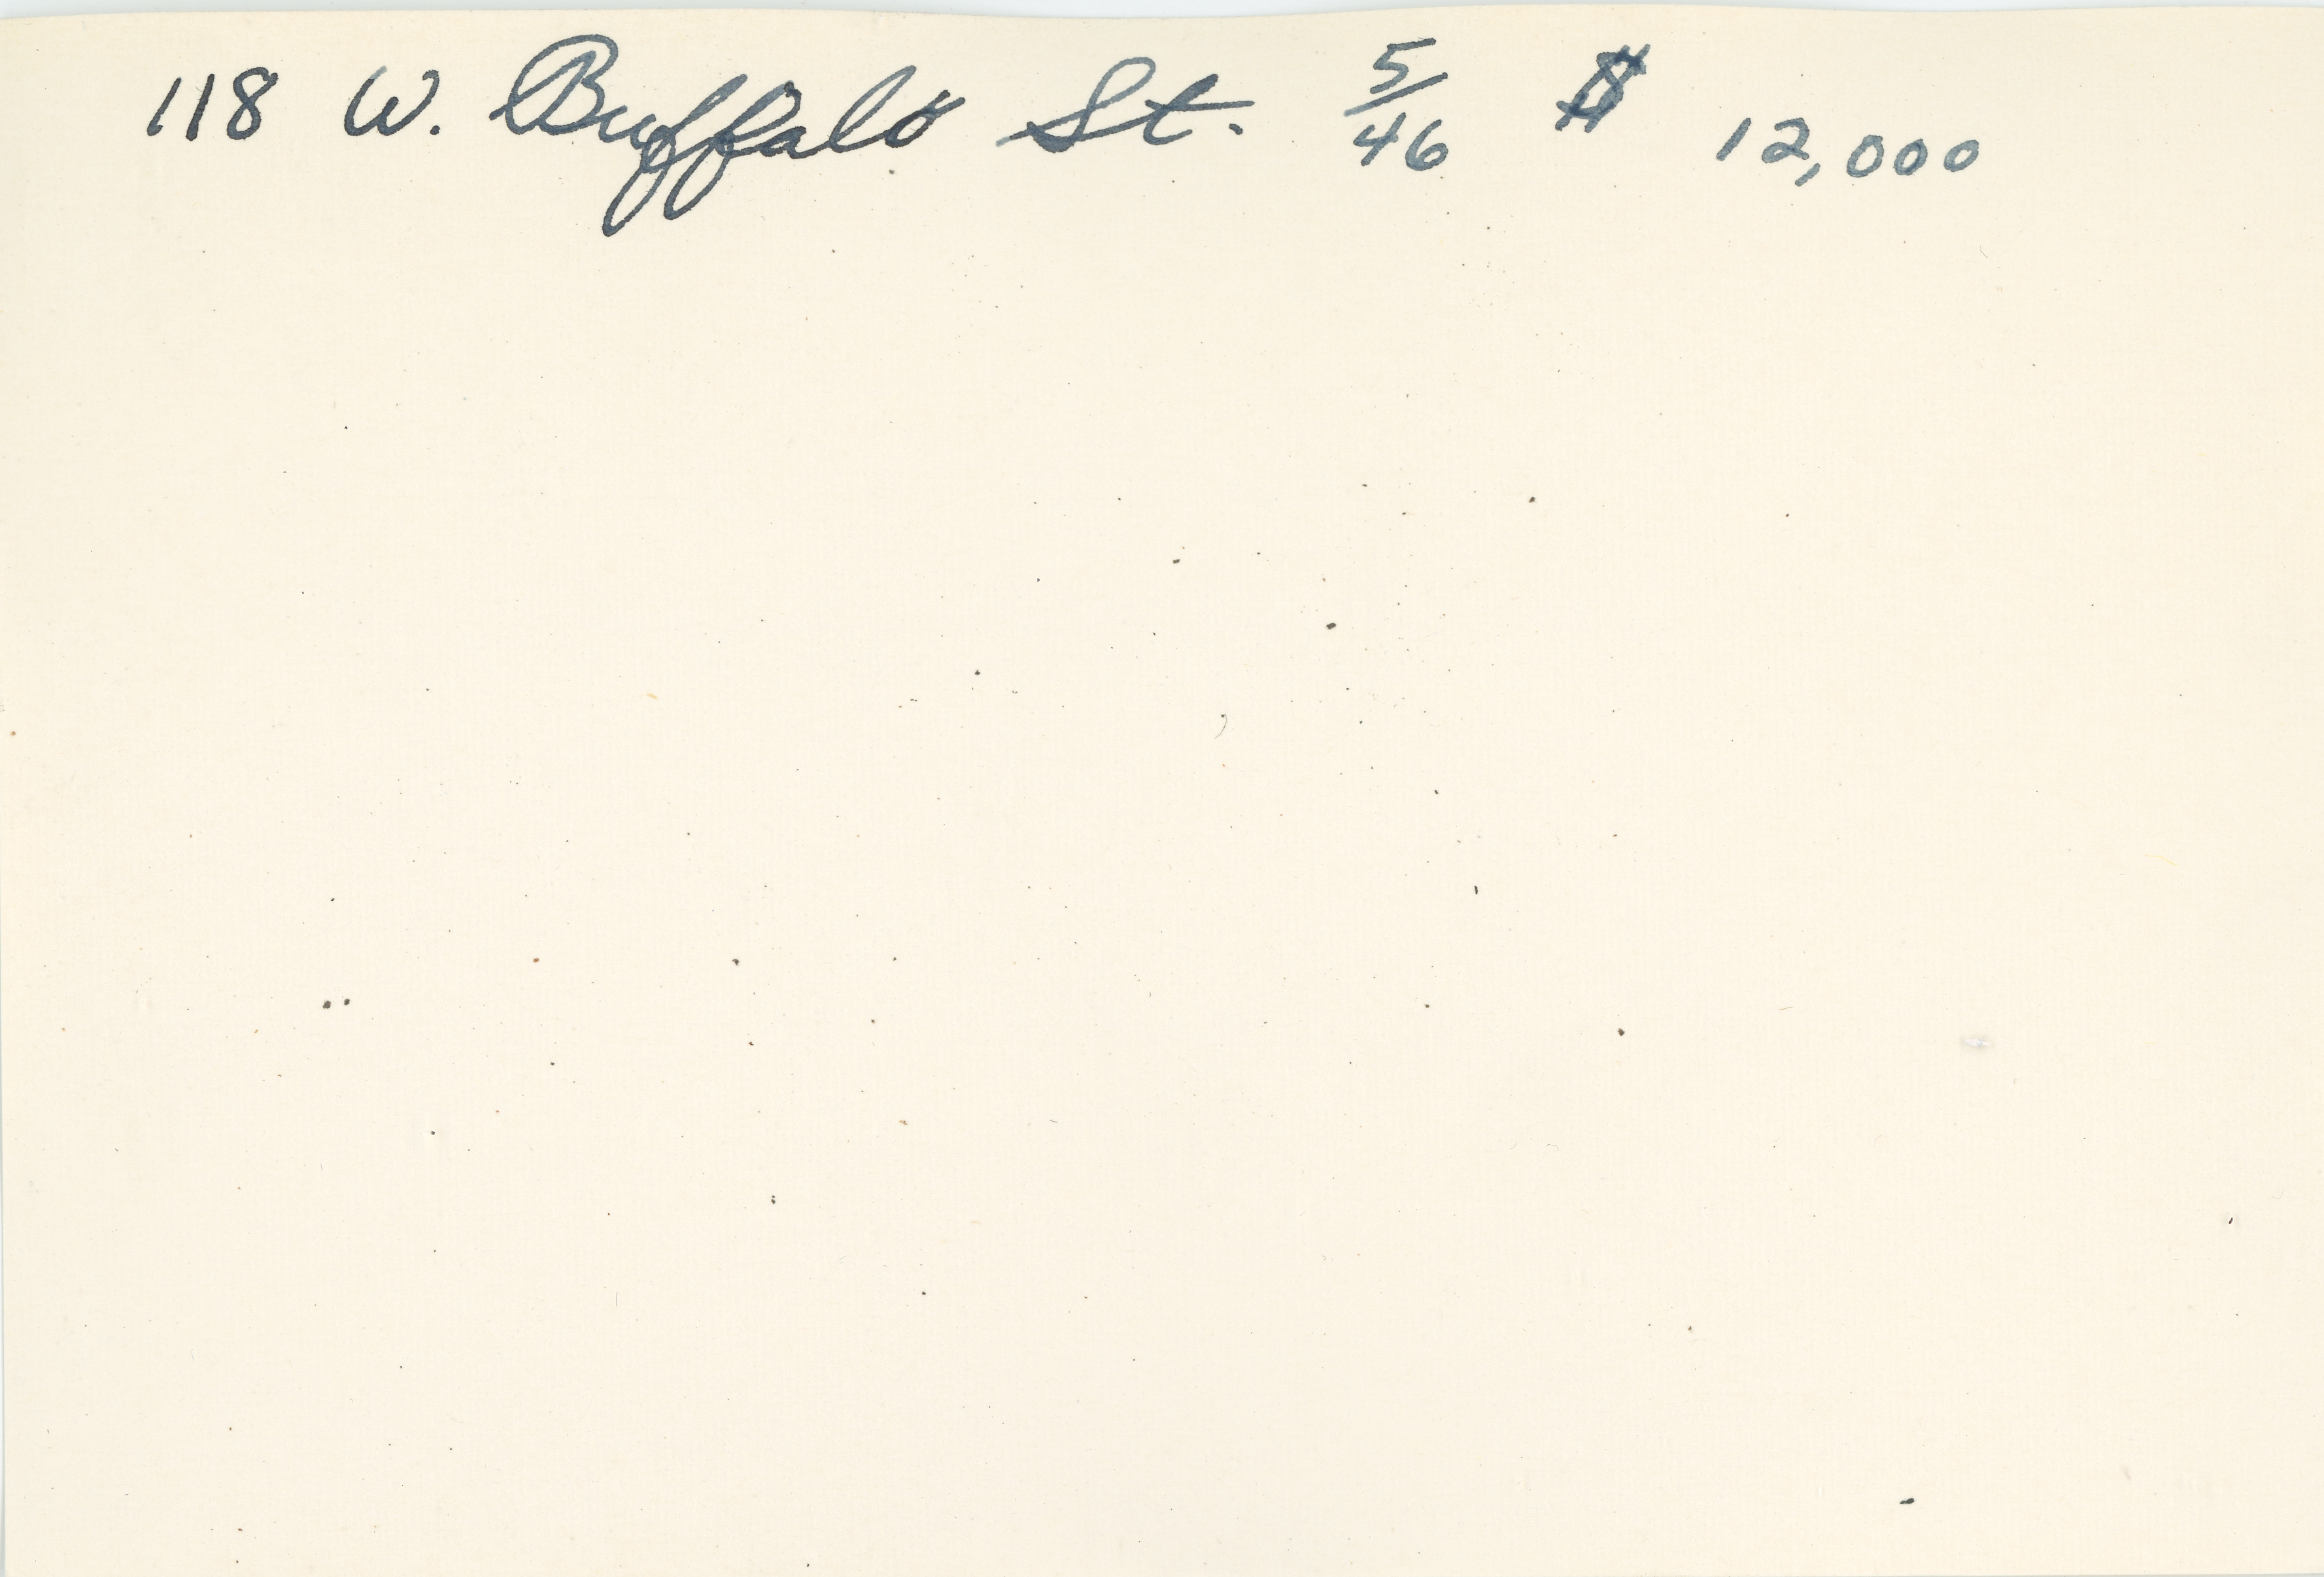 118 W. Buffalo St. 5/46 $ 12,000